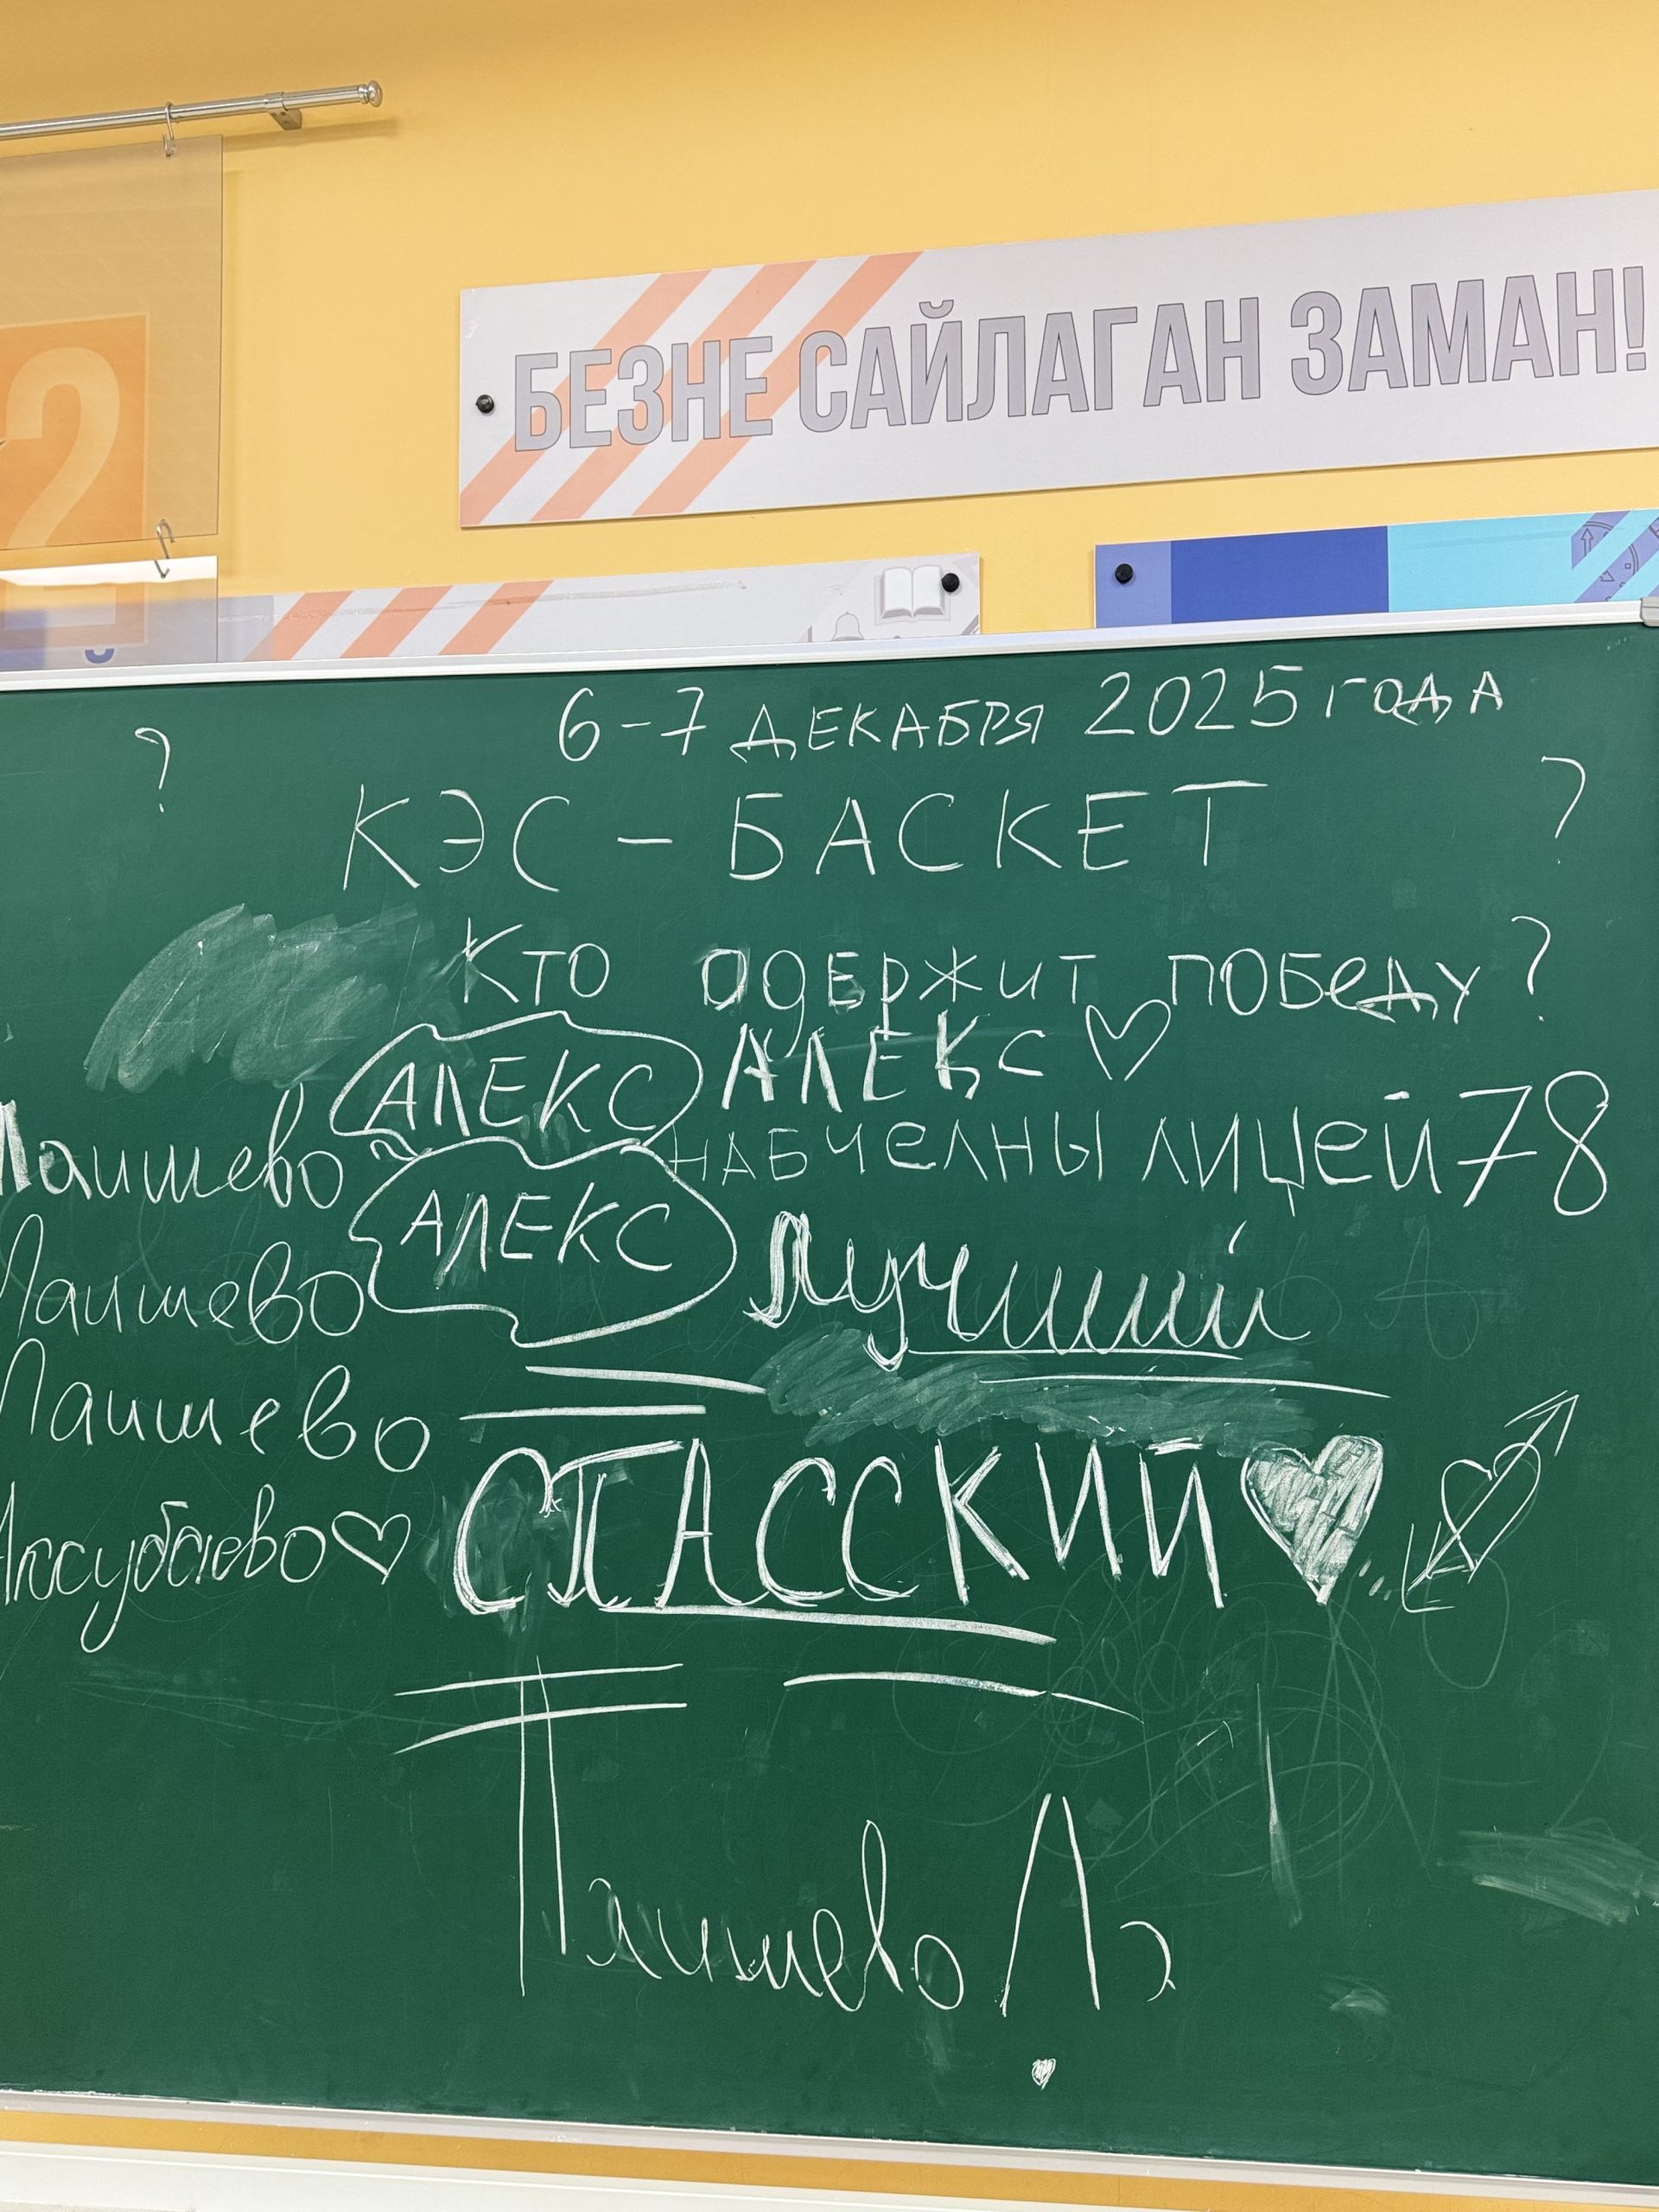 БЕЗНЕ САЙЛАГАН ЗАМАН!
2
6-7 ДЕКАБРЯ 2025 ГОДА
? ?
КЭС - БАСКЕТ
КТО ОДЕРЖИТ ПОБеДУ?
АЛЕКС АЛЕКС ♡
Лаишево НАБЧеЛНЫ ЛИЦей 78
Лаишево АЛЕКС Лучший
Лаишево
Аксубаево ♡ СПАССКИЙ ♥
Лаишево